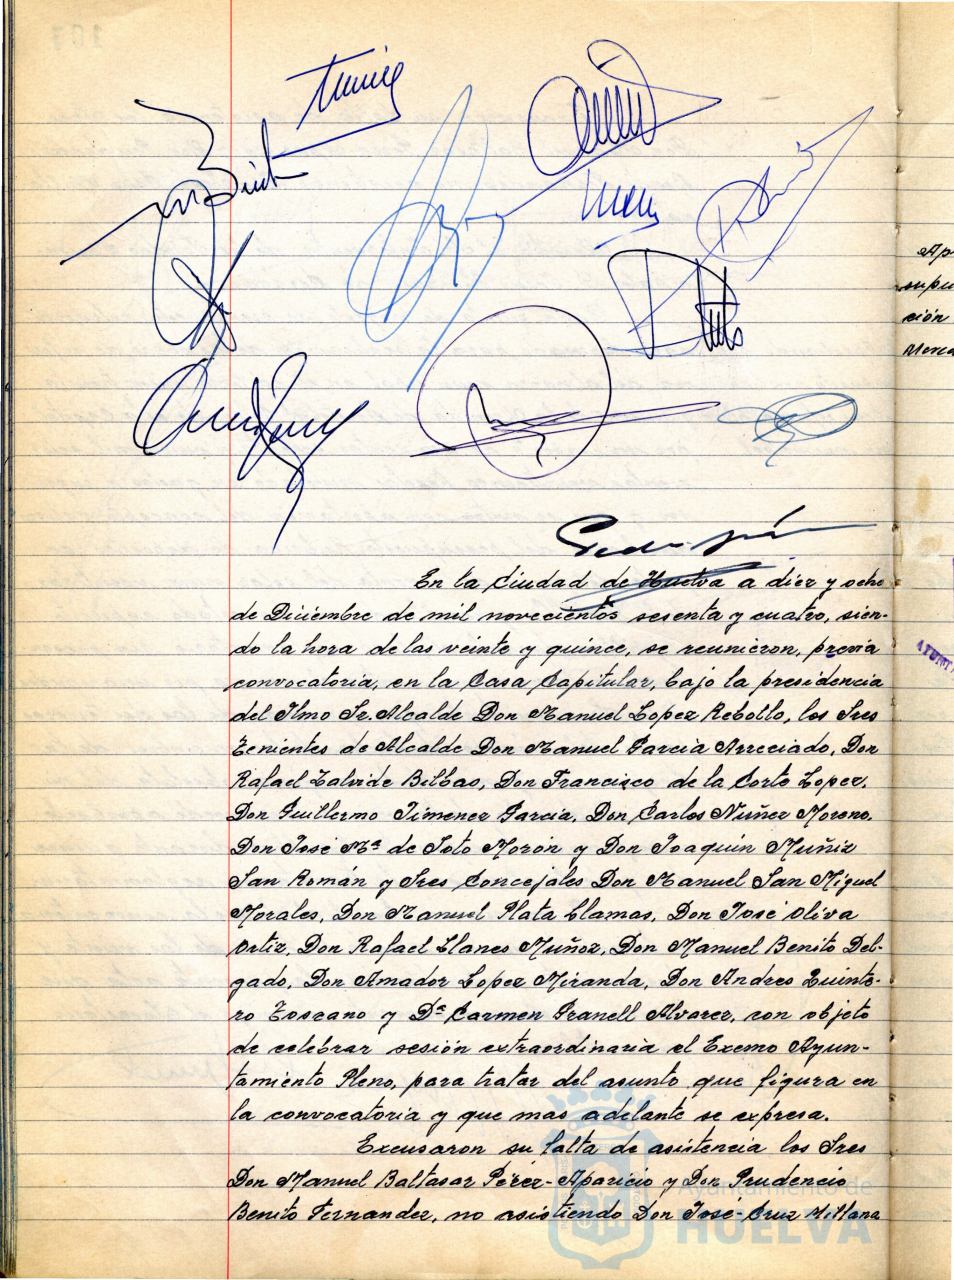 En la Ciudad de Huelva a diez y ocho
de Diciembre de mil novecientos sesenta y cuatro, sien-
do la hora de las veinte y quince, se reunieron, previa
convocatoria, en la Casa Capitular, bajo la presidencia
del Ilmo Sr. Alcalde Don Manuel Lopez Rebollo, los Sres
Tenientes de Alcalde Don Manuel Garcia Arreciado, Don
Rafael Zalvide Bilbao, Don Francisco de la Corte Lopez,
Don Guillermo Jimenez Garcia, Don Carlos Nuñez Moreno,
Don José Mª de Soto Morón y Don Joaquin Muñiz
San Román y Sres Concejales Don Manuel San Miguel
Morales, Don Manuel Plata Llamas, Don José Oliva
Ortiz, Don Rafael Llanes Muñoz, Don Manuel Benito Del-
gado, Don Amador Lopez Miranda, Don Andres Quinte-
ro Toscano y Dª Carmen Granell Alvarez, con objeto
de celebrar sesión extraordinaria el Excmo Ayun-
tamiento Pleno, para tratar del asunto que figura en
la convocatoria y que mas adelante se expresa.
Excusaron su falta de asistencia los Sres
Don Manuel Baltasar Pérez-Aparicio y Don Prudencio
Benito Fernandez, no asistiendo Don José-Cruz Millana
Ayuntamiento de
HUELVA